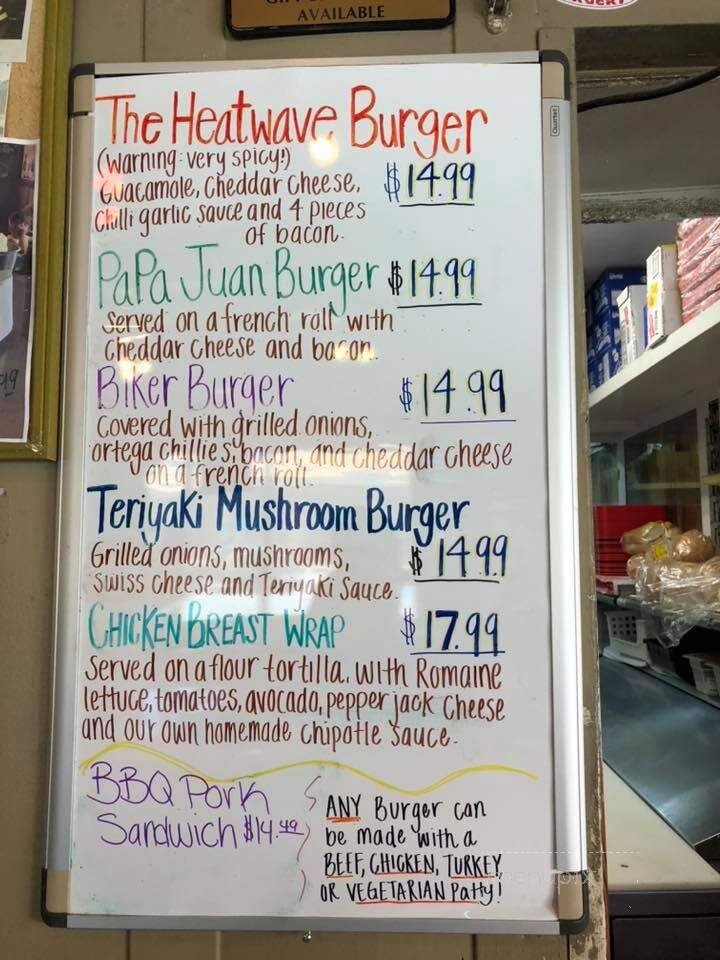 AVAILABLE
Quartet
The Heatwave Burger
(Warning: very spicy!)
Guacamole, Cheddar Cheese, $14.99
Chilli garlic sauce and 4 pieces
of bacon.
PaPa Juan Burger $14.99
Served on a french roll with
cheddar cheese and bacon.
Biker Burger $14.99
Covered with grilled onions,
ortega chillies, bacon, and cheddar cheese
on a french roll.
Teriyaki Mushroom Burger
Grilled onions, mushrooms, $14.99
Swiss cheese and Teriyaki Sauce.
CHICKEN BREAST WRAP $17.99
Served on a flour tortilla. With Romaine
lettuce, tomatoes, avocado, pepper jack cheese
and our own homemade chipotle sauce.
BBQ Pork
Sandwich $14.49
ANY Burger can
be made with a
BEEF, CHICKEN, TURKEY
OR VEGETARIAN Patty!